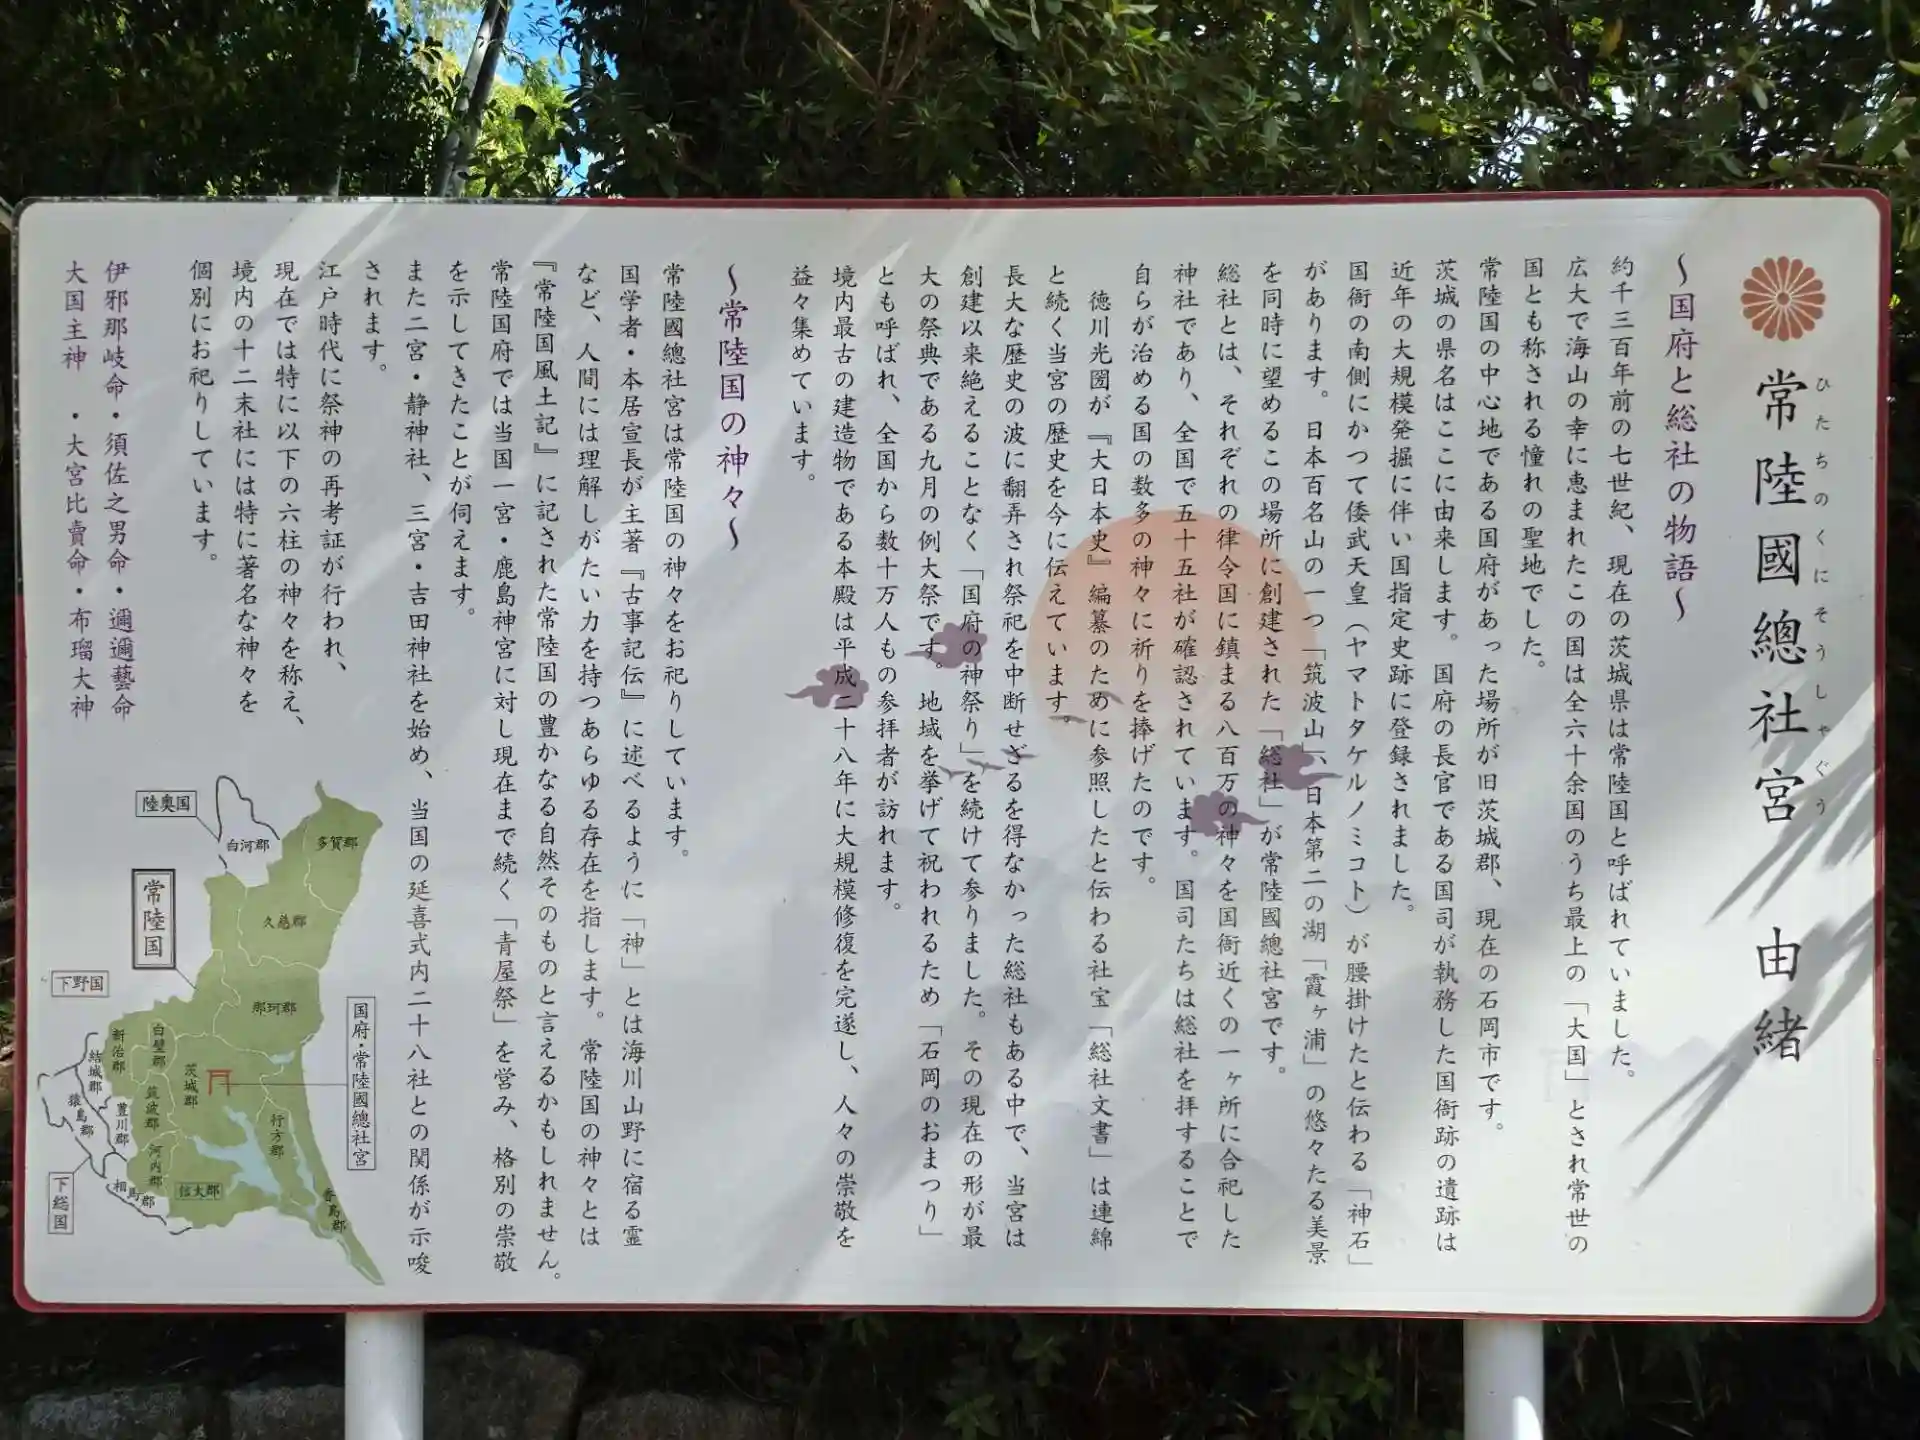 常陸國總社宮　由緒
ひたちのくにそうしゃぐう
～国府と総社の物語～
約千三百年前の七世紀、現在の茨城県は常陸国と呼ばれていました。
広大で海山の幸に恵まれたこの国は全六十余国のうち最上の「大国」とされ常世の
国とも称される憧れの聖地でした。
常陸国の中心地である国府があった場所が旧茨城郡、現在の石岡市です。
茨城の県名はここに由来します。国府の長官である国司が執務した国衙跡の遺跡は
近年の大規模発掘に伴い国指定史跡に登録されました。
国衙の南側にかつて倭武天皇（ヤマトタケルノミコト）が腰掛けたと伝わる「神石」
があります。日本百名山の一つ「筑波山」、日本第二の湖「霞ヶ浦」の悠々たる美景
を同時に望めるこの場所に創建された「総社」が常陸國總社宮です。
総社とは、それぞれの律令国に鎮まる八百万の神々を国衙近くの一ヶ所に合祀した
神社であり、全国で五十五社が確認されています。国司たちは総社を拝することで
自らが治める国の数多の神々に祈りを捧げたのです。
徳川光圀が『大日本史』編纂のために参照したと伝わる社宝「総社文書」は連綿
と続く当宮の歴史を今に伝えています。
長大な歴史の波に翻弄され祭祀を中断せざるを得なかった総社もある中で、当宮は
創建以来絶えることなく「国府の神祭り」を続けて参りました。その現在の形が最
大の祭典である九月の例大祭です。地域を挙げて祝われるため「石岡のおまつり」
とも呼ばれ、全国から数十万人もの参拝者が訪れます。
境内最古の建造物である本殿は平成二十八年に大規模修復を完遂し、人々の崇敬を
益々集めています。
～常陸国の神々～
常陸國總社宮は常陸国の神々をお祀りしています。
国学者・本居宣長が主著『古事記伝』に述べるように「神」とは海川山野に宿る霊
など、人間には理解しがたい力を持つあらゆる存在を指します。常陸国の神々とは
『常陸国風土記』に記された常陸国の豊かなる自然そのものと言えるかもしれません。
常陸国府では当国一宮・鹿島神宮に対し現在まで続く「青屋祭」を営み、格別の崇敬
を示してきたことが伺えます。
また二宮・静神社、三宮・吉田神社を始め、当国の延喜式内二十八社との関係が示唆
されます。
江戸時代に祭神の再考証が行われ、
現在では特に以下の六柱の神々を称え、
境内の十二末社には特に著名な神々を
個別にお祀りしています。
伊邪那岐命・須佐之男命・邇邇藝命
大国主神　・大宮比賣命・布瑠大神
陸奥国
白河郡
多賀郡
常陸国
久慈郡
下野国
那珂郡
国府・常陸國總社宮
新治郡
白壁郡
結城郡
茨城郡
筑波郡
猿島郡
豊川郡
行方郡
河内郡
相馬郡
信太郡
下総国
香島郡